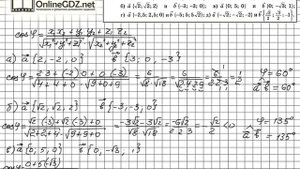 OnlineGDZ.net
б) a {√2; √2; 2} и b {-3; -3; 0}; в) a {0; 5; 0} и b {0; -√3; 1};
cos φ = x₁x₂ + y₁y₂ + z₁z₂ / √x₁²+y₁²+z₁² · √x₂²+y₂²+z₂²
а) a {2, -2, 0} b {3; 0; -3}
cosφ = 2·3 + (-2)·0 + 0·(-3) / √4+4+0 · √9+0+9 = 6 / √8 √18 = 6 / √4·2·2·9 = 6 / 2·2·3 = 1/2 φ = 60°
a b = 60°
б) a {√2, √2, 2} b {-3, -3, 0}
cosφ = √2·(-3) + √2·(-3) + 2·0 / √2+2+4 · √9+9+0 = -3√2 - 3√2 / √8 √18 = -6√2 / 2·2·3 = -√2/2 < 0 φ = 135°
a b = 135°
в) a {0, 5, 0} b {0, -√3, 1}
0 + 5(-√3)